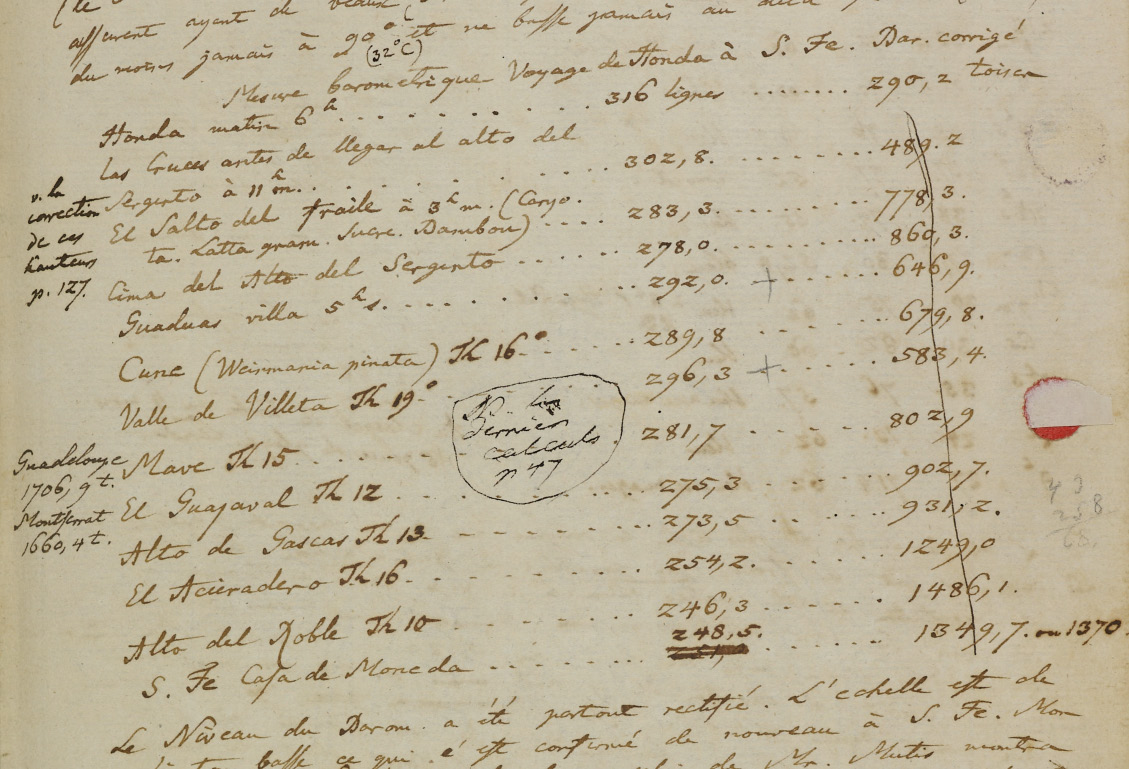 assurent ayant de veaux
du moins jamais à 90° et ne baisse jamais au delà
(32°C)
Mesure barometrique Voyage de Honda à S. Fe. Bar. corrigé
Honda matin 6h. . . . . . . . . 316 lignes . . . . . . . . 290,2 toises
Las Cruces antes de llegar al alto del
Sergento à 11h m. . . . . . . . . 302,8. . . . . . . . . 489.2
v. la
correction
de ces
hauteurs
p. 127.
El Salto del fraile à 3h m. (Caryo.
ta. Latta gram. Sucre. Bambou) . . . . 283,3. . . . . . . . . 778,3.
Cima del Alto del Sergento . . . . . . 278,0. . . . . . . . . 860,3.
Guaduas villa 5h s. . . . . . . . . 292,0. + . . . . . . 646,9.
Cune (Weinmania pinata) Th 16° . . . . . . 289,8 . . . . . . 679,8.
Valle de Villeta Th 19° . . . . . . 296,3 + . . . . . . 583,4.
Mave Th 15 . . . . . . . . 281,7 . . . . . . . . 802,9
Guadeloupe
1706,9t.
Montserrat
1660,4t.
El Guajaval Th 12 . . . . . . . . 275,3 . . . . . . . 902,7.
Alto de Gascas Th 13. . . . . . . . 273,5 . . . . . . 931,2.
El Acieradero Th 16. . . . . . . . 254,2. . . . . . . 1249,0
Alto del Roble Th 10 . . . . . . . . 246,3 . . . . . . . 1486,1.
S. Fe Casa de Moneda . . . . . . . 248,5. . . . . . . 1349,7. ou 1370.
les
derniers
calculs
p 47
Le Niveau du Barom. a été partout rectifié. L'echelle est de
basse ce qui é est confirmé de nouveau à S. Fe. Mon
de Mr. Mutis montra